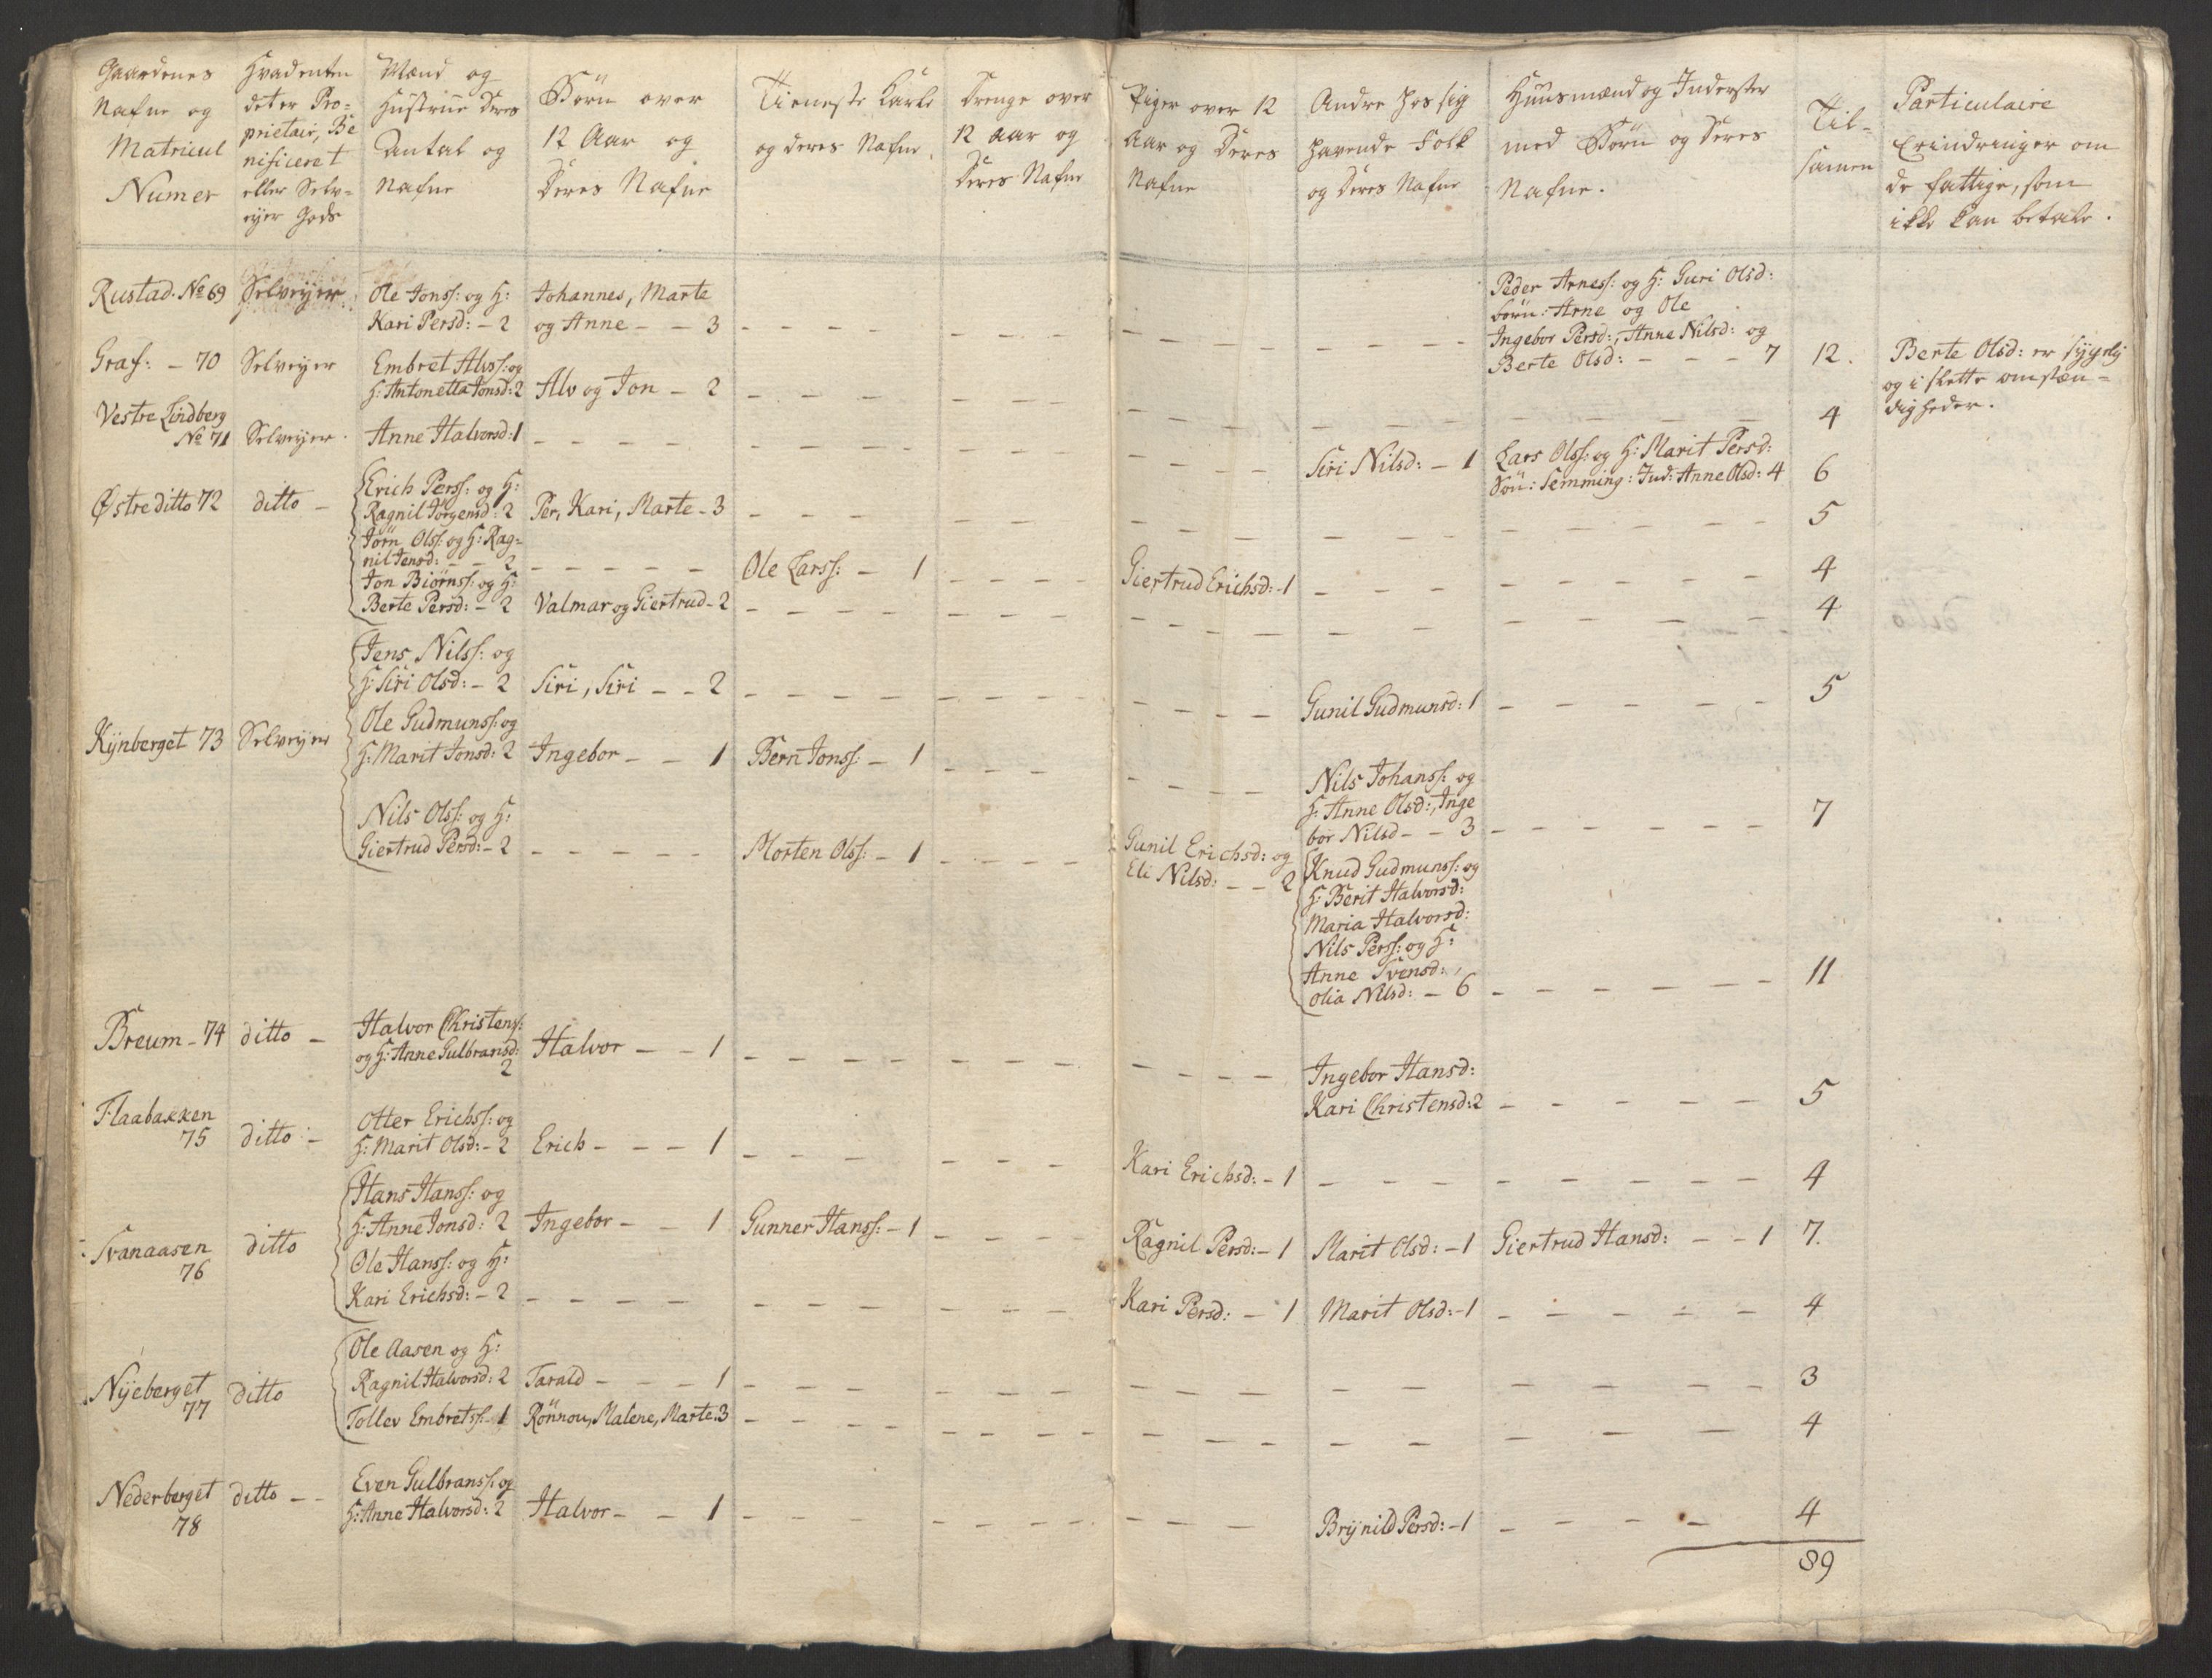 Gaardenes
Nafne og
Matricul
Numer
Hvadenten
det er Pro-
prietair, Be
nificeret
eller Selv-
eyer Gods
Mænd og
Hustrue deres
Antal og
Nafne
Börn over
12 Aar og
Deres Nafne
Tieneste Karle
og deres Nafne
Drenge over
12 Aar og
Deres Nafne
Piger over 12
Aar og Deres
Nafne
Andre hos sig
havende Folk
og Deres Nafne
Huusmænd og Inderster
med Börn og Deres
Nafne.
Til-
samen
Particulaire
Erindringer om
de fattige, som
ikke kan betale.
Rustad. No 69 Selveyer
Ole Jonss: og H:
Kari Persd: - 2
Johannes, Marte
og Anne - - 3
Peder Arness: og H: Guri Olsd:
börn: Arne og Ole
Ingebor Persd:, Anne Nilsd: og
Berte Olsd: - - - 7
12.
Berte Olsd: er sygelig
og i slette omstæn-
digheder.
Graf: - 70 Selveyer
Embret Alvss: og
H: Antonetta Jonsd: 2
Alv og Jon - 2
4
Vestre Lindberg
No 71 Selveyer.
Anne Halvorsd: 1
Siri Nilsd: - 1
Lars Olss: og H: Marit Persd:
Sön: Semming: Ind: Anne Olsd: 4
6
Østre ditto 72 ditto -
Erich Perss: og H:
Ragnil Jörgensd: 2
Per, Kari, Marte - 3
5
Jörn Olss: og H: Rag-
nil Jensd: - - 2
Ole Larss: - 1
Giertrud Erichsd: - 1
4
Jon Biörnss: og H:
Berte Persd: - 2
Valmar og Giertrud - 2
4
Kÿnberget 73 Selveyer
Jens Nilss: og
H: Siri Olsd: - 2
Siri, Siri - - 2
Gunil Gudmunsd: 1
5
Ole Gudmunss: og
H: Marit Jonsd: 2
Ingebor - - 1
Bern Jonss: - 1
Nils Johanss: og
H: Anne Olsd:, Inge
bor Nilsd - - 3
7
Nils Olss: og H:
Giertrud Persd: - 2
Morten Olss: - 1
Gunil Erichsd: og
Eli Nilsd: - - 2
Knud Gudmunss: og
H: Berit Halvorsd:
Maria Halvorsd:
Nils Perss: og H:
Anne Svensd:,
Olia Nilsd: - 6
11
Breum - 74 ditto -
Halvor Christens:
og H: Anne Gulbransd:
2
Halvor - - 1
Ingebor Hansd:
Kari Christensd: 2
5
Flaabakken
75 ditto -
Otter Erichss: og
H: Marit Olsd: - 2
Erich - - - 1
Kari Erichsd: - 1
4
Svanaasen
76
ditto
Hans Hanss: og
H: Anne Jonsd: 2
Ingebor - - 1
Gunner Hanss: - 1
Ragnil Persd: - 1
Marit Olsd: - 1
Giertrud Hansd: - - 1
7.
Ole Hanss: og H:
Kari Erichsd: - 2
Kari Persd: - 1
Marit Olsd: - 1
4
Nÿeberget
77
ditto
Ole Aasen og H:
Ragnil Halvorsd: 2
Tarald - - - 1
3
Tollev Embretss: - 1
Rönnou, Malene, Marte. 3
4
Nederberget
78
ditto - -
Even Gulbranss: og
H: Anne Halvorsd: 2
Halvor - - 1
Brÿnild Persd: - 1
4
89